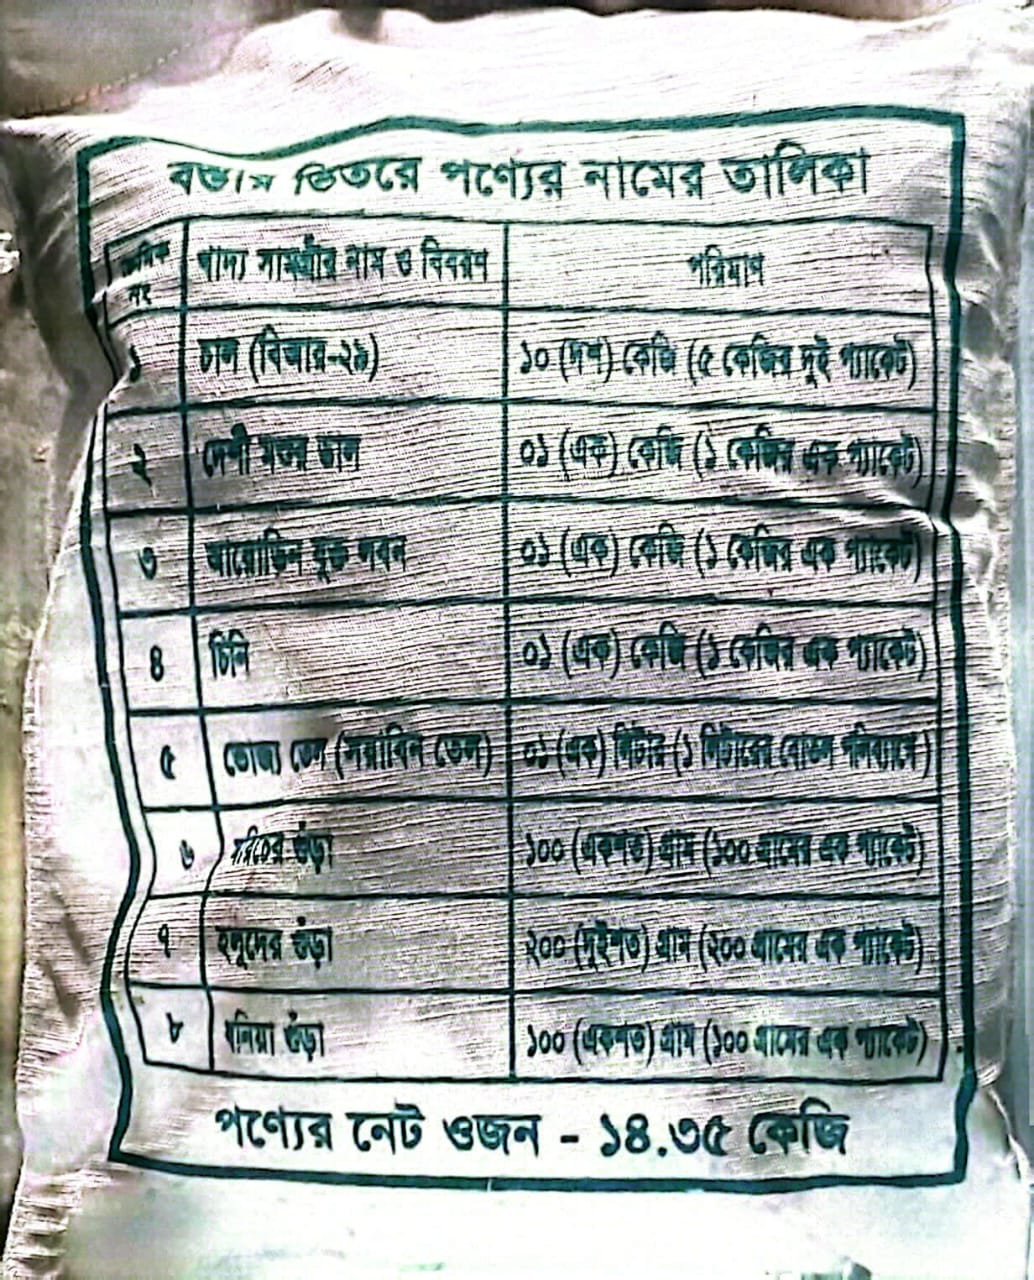 বস্তার ভিতরে পণ্যের নামের তালিকা
ক্রমিক নং খাদ্য সামগ্রীর নাম ও বিবরণ পরিমাণ
১ চাল (বিআর-২৯) ১০ (দশ) কেজি (৫ কেজির দুই প্যাকেট)
২ দেশী মশুর ডাল ০১ (এক) কেজি (১ কেজির এক প্যাকেট)
৩ আয়োডিন যুক্ত লবন ০১ (এক) কেজি (১ কেজির এক প্যাকেট)
৪ চিনি ০১ (এক) কেজি (১ কেজির এক প্যাকেট)
৫ ভোজ্য তেল (সয়াবিন তেল) ০১ (এক) লিটার (১ লিটারের বোতল পলিব্যাগে)
৬ মরিচের গুঁড়া ১০০ (একশত) গ্রাম (১০০ গ্রামের এক প্যাকেট)
৭ হলুদের গুঁড়া ২০০ (দুইশত) গ্রাম (২০০ গ্রামের এক প্যাকেট)
৮ ধনিয়া গুঁড়া ১০০ (একশত) গ্রাম (১০০ গ্রামের এক প্যাকেট)
পণ্যের নেট ওজন - ১৪.৩৫ কেজি